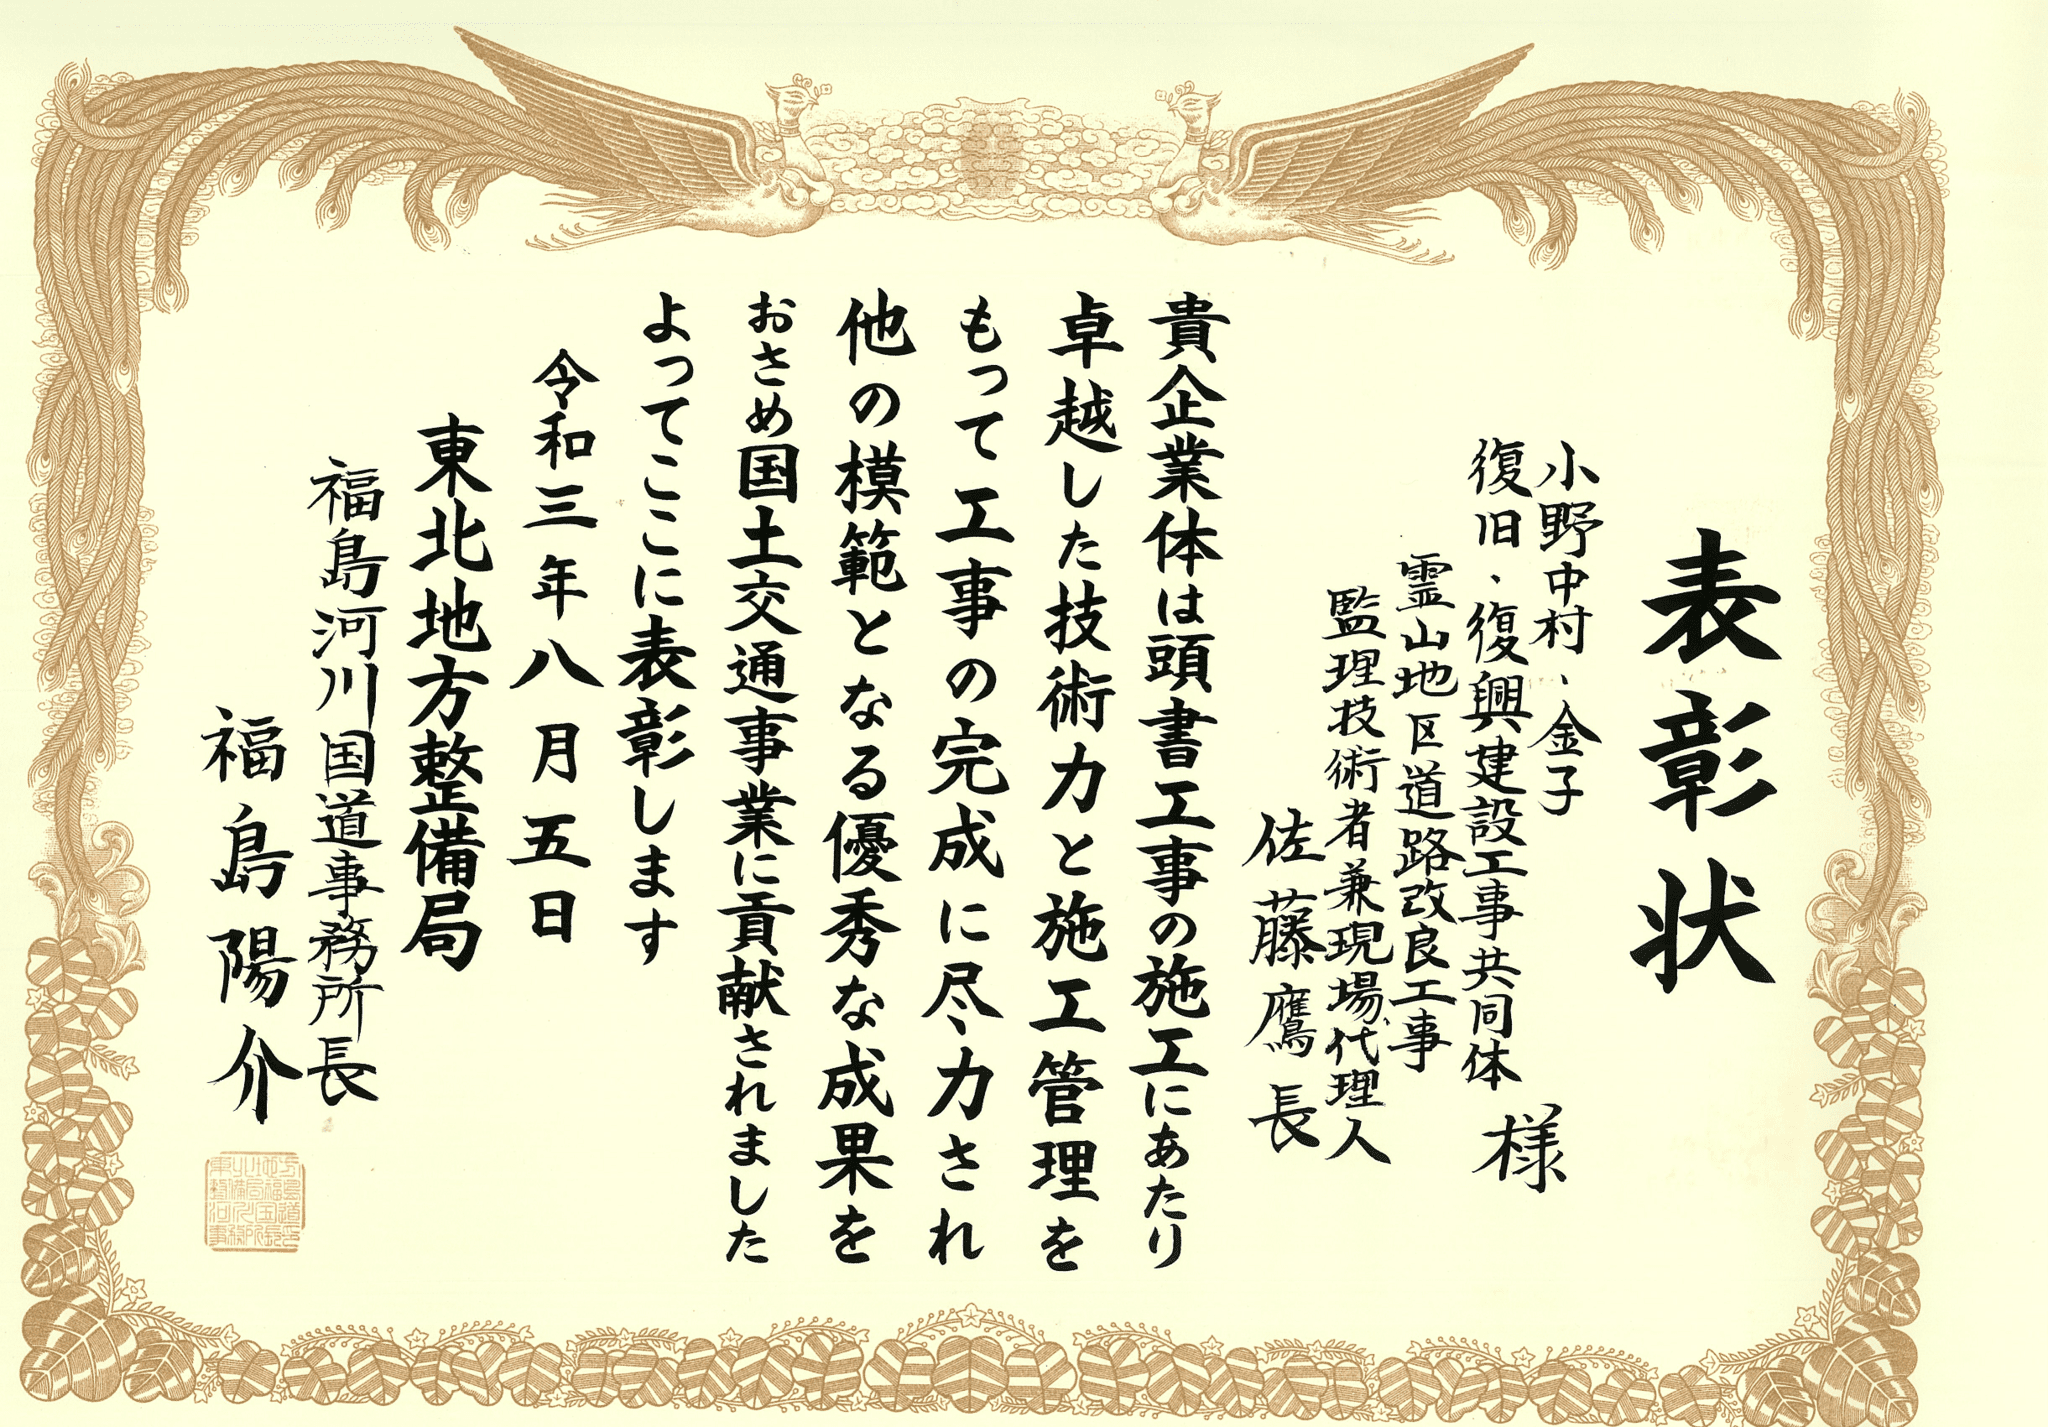 表彰状
小野中村・金子
復旧・復興建設工事共同体 様
霊山地区道路改良工事
監理技術者兼現場代理人
佐藤鷹長
貴企業体は頭書工事の施工にあたり
卓越した技術力と施工管理を
もって工事の完成に尽力され
他の模範となる優秀な成果を
おさめ国土交通事業に貢献されました
よってここに表彰します
令和三年八月五日
東北地方整備局
福島河川国道事務所長
福島陽介